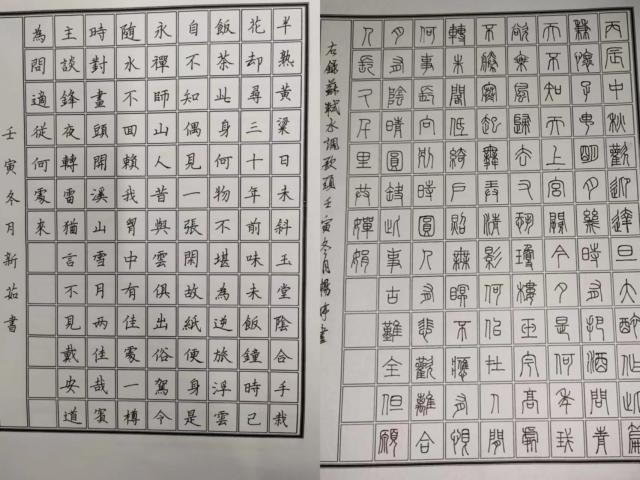 半熟黃粱日未斜玉堂陰合手栽
花却尋三十年前味未飯鐘時已
飯茶此身何物不堪為逆旅浮雲
自不知偶見一張閑故紙便身是
永禪師山人昔與雲俱出俗駕今
隨水不回賴我胷中有佳處一樽
時對畫頭開溪山雪月兩佳哉賓
主談鋒夜轉雷猶言不見戴安道
為問適從何處來
壬寅冬月新茹書
丙辰中秋歡飲達旦大醉作此篇
兼懷子由明月幾時有把酒問青
天不知天上宮闕今夕是何年我
欲乘風歸去又恐瓊樓玉宇高處
不勝寒起舞弄清影何似在人間
轉朱閣低綺戶照無眠不應有恨
何事長向別時圓人有悲歡離合
月有陰晴圓缺此事古難全但願
人長久千里共嬋娟
右錄蘇軾水調歌頭壬寅冬月楊婷書